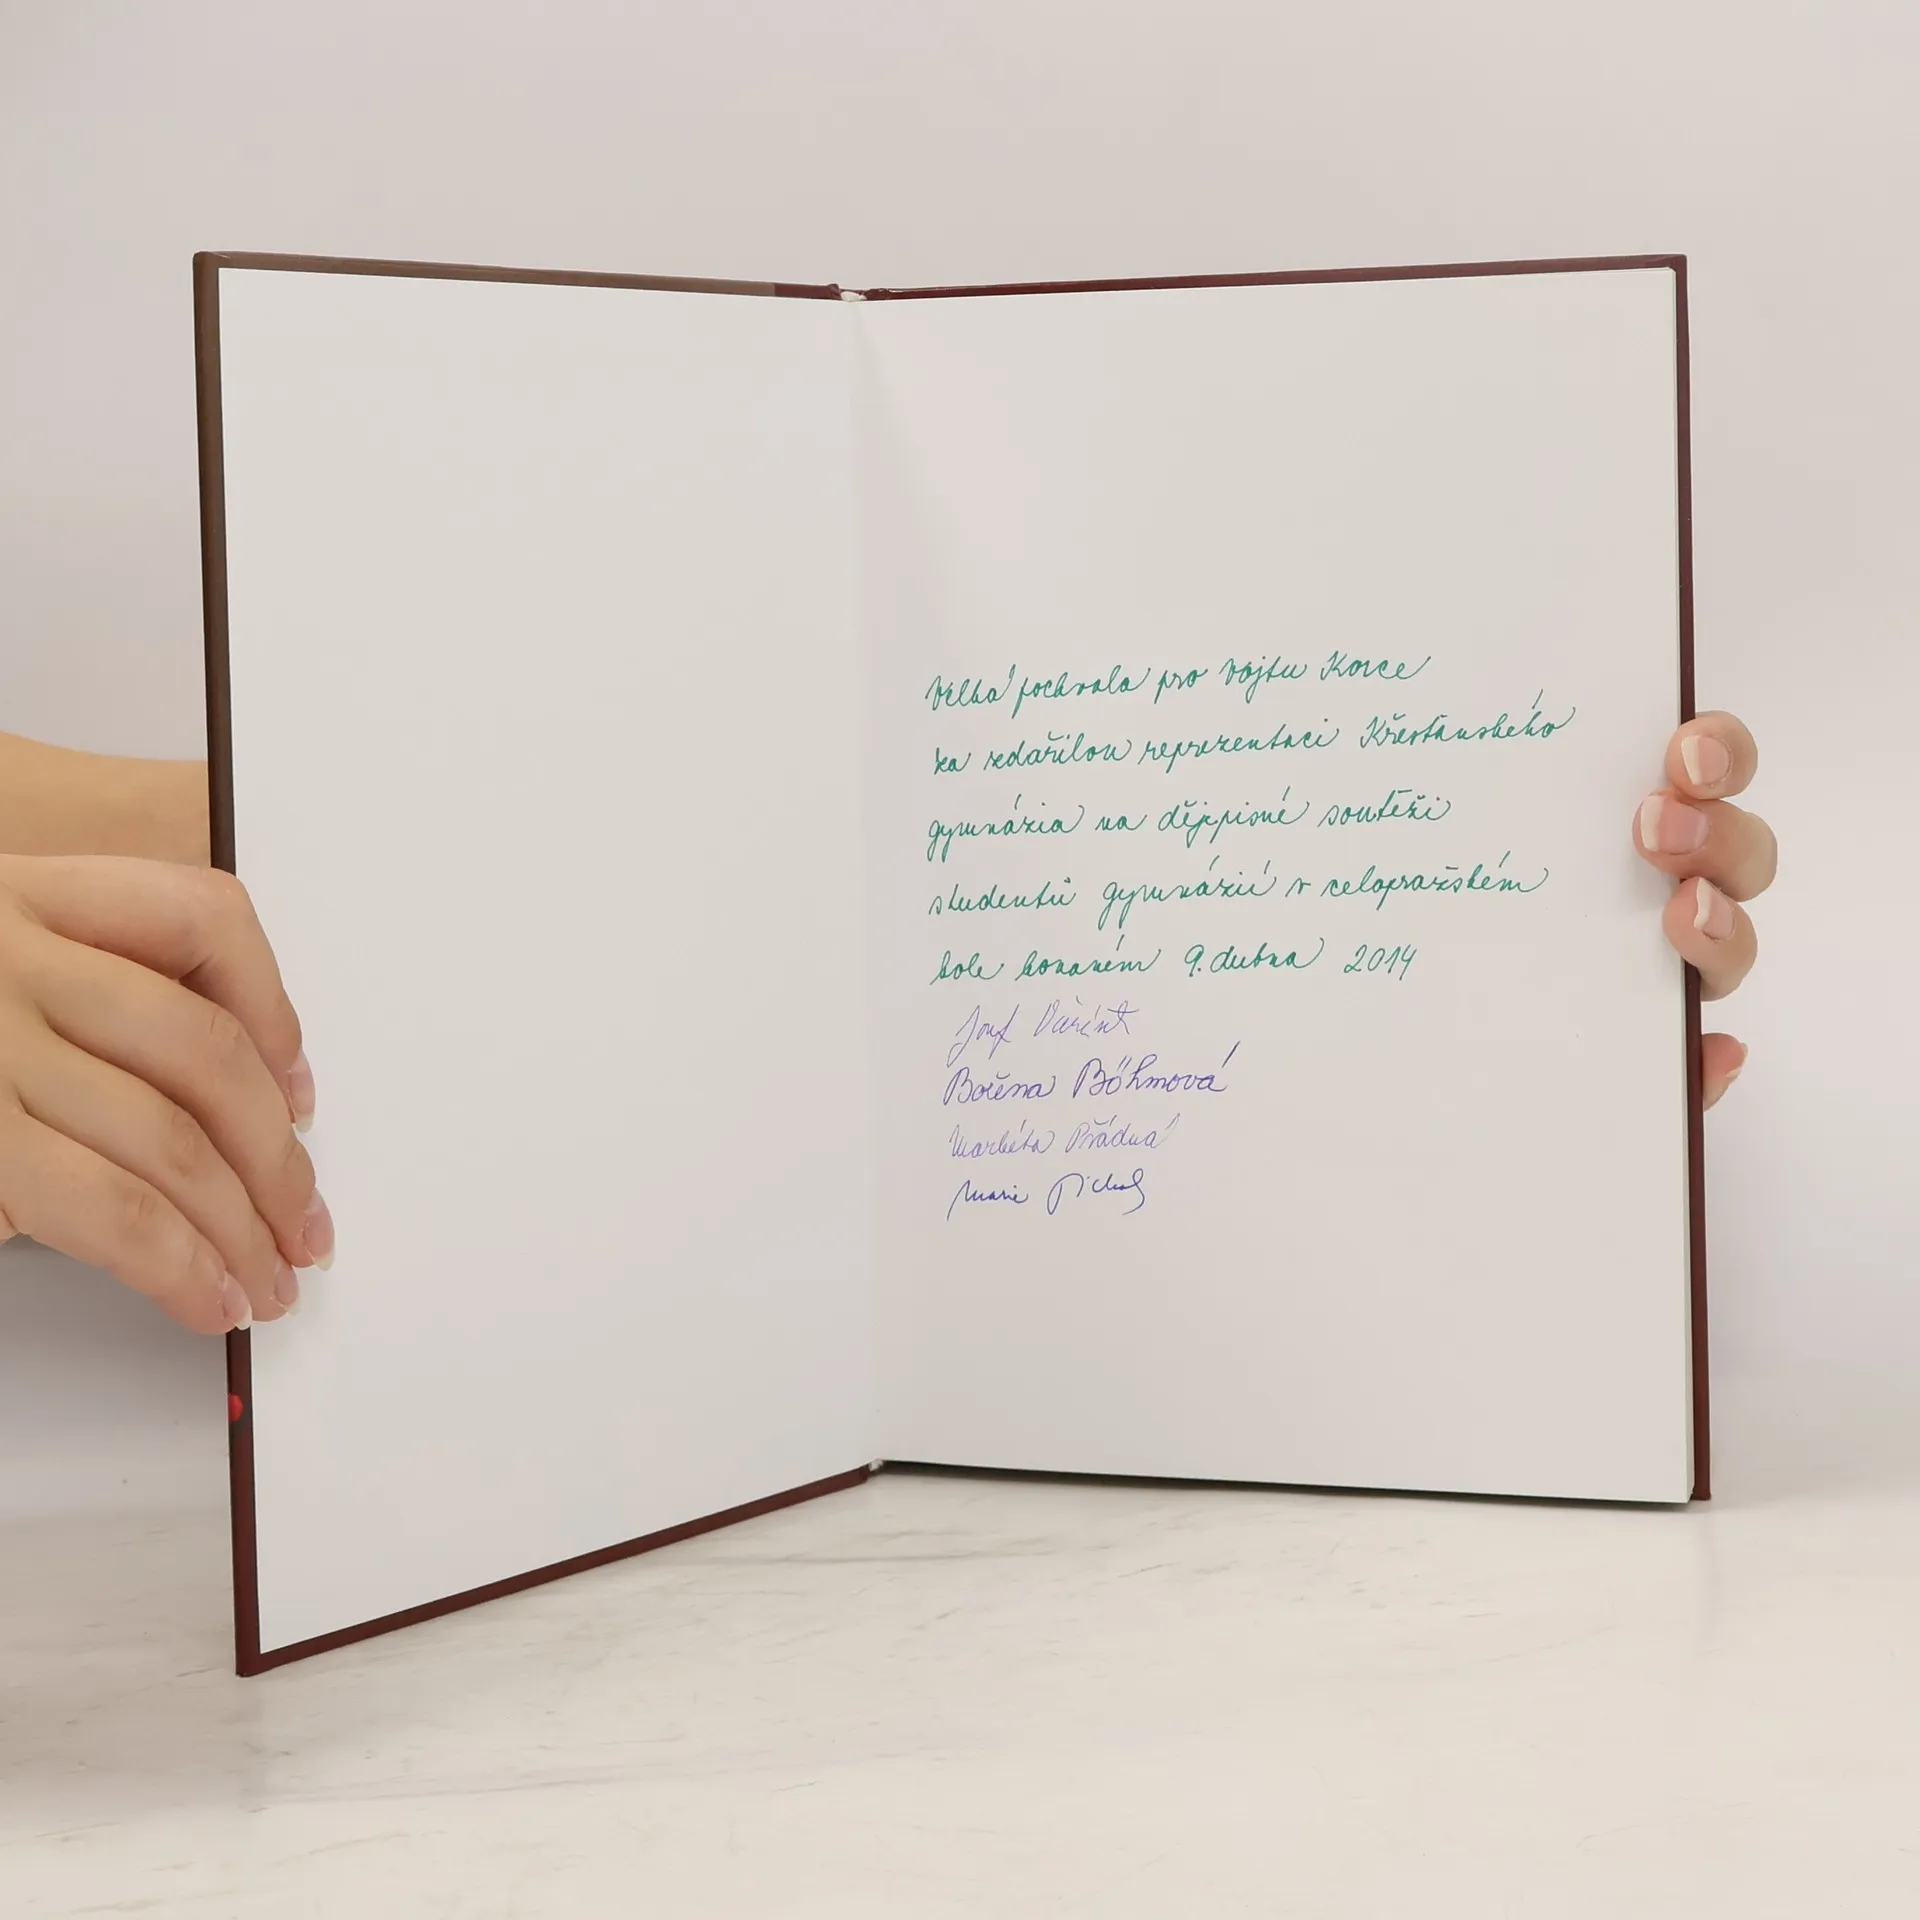 Velká pochvala pro Vojtu Korce
za zdařilou reprezentaci Křesťanského
gymnázia na dějepisné soutěži
studentů gymnázií v celopražském
kole konaném 9. dubna 2014
Josef
Božena Böhmová
Markéta Přádná
Marie